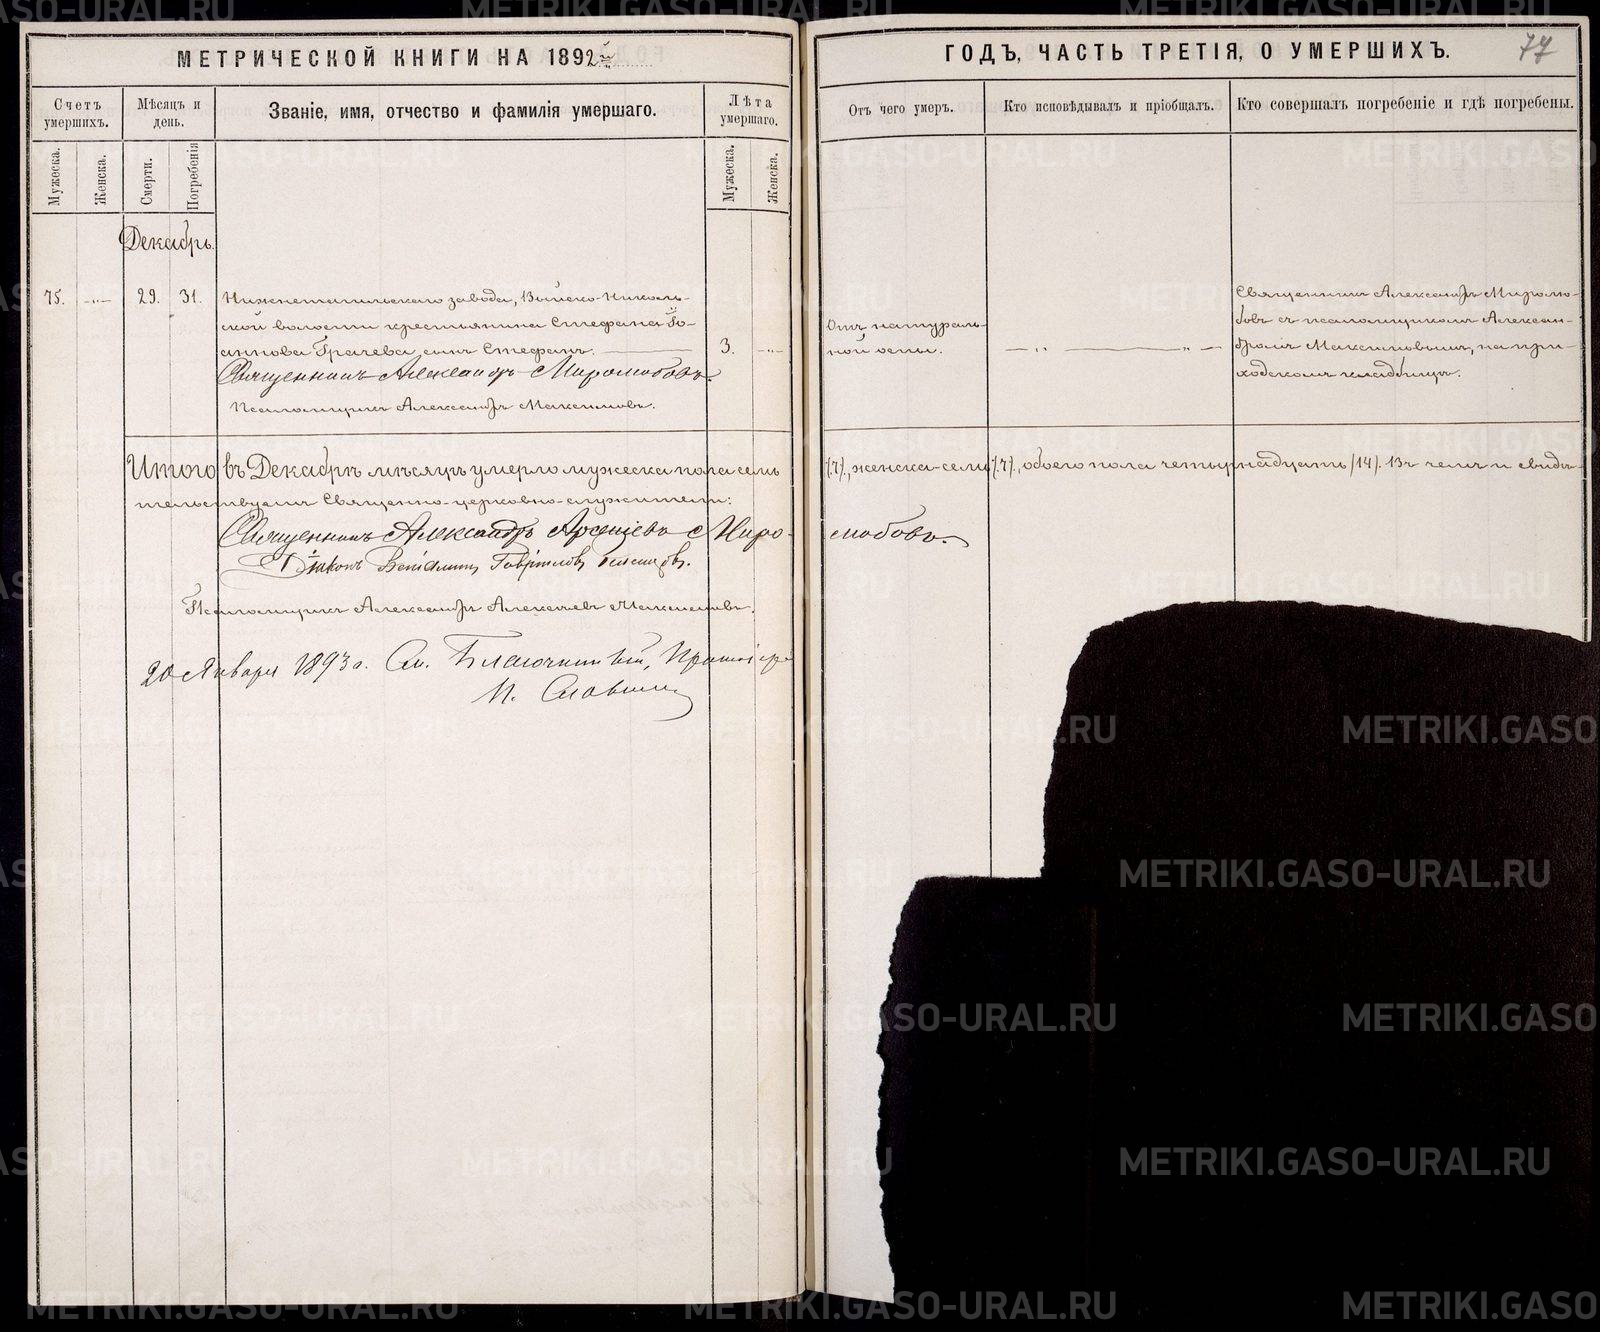 МЕТРИЧЕСКОЙ КНИГИ НА 1892
ГОДЪ, ЧАСТЬ ТРЕТІЯ, О УМЕРШИХЪ.
77
Счетъ умершихъ.
Мѣсяцъ и день.
Званіе, имя, отчество и фамилія умершаго.
Лѣта умершаго.
Отъ чего умеръ.
Кто исповѣдывалъ и пріобщалъ.
Кто совершалъ погребеніе и гдѣ погребены.
Мужеска.
Женска.
Смерти.
Погребенія
Мужеска.
Женска.
Декабрь.
75.
29.
31.
Нижнетагильскаго завода, Выйско-Николь-
ской волости крестьянина Стефана Іо-
аннова Грачева сынъ Стефанъ.
3.
Отъ натураль-
ной оспы.
Священникъ Александръ Миролю-
бовъ съ псаломщикомъ Алексан-
дромъ Максимовымъ, на при-
ходскомъ кладбищѣ.
Священникъ Александръ Миролюбовъ.
Псаломщикъ Александръ Максимовъ.
Итого въ Декабрѣ мѣсяцѣ умерло мужеска пола семь (7), женска-семь (7), обоего пола четырнадцать (14). Въ чемъ и свидѣ-
тельствуемъ Священно-церковно-служители:
Священникъ Александръ Арсеніевъ Миролюбовъ.
Діаконъ Веніаминъ Гавріиловъ
Псаломщикъ Александръ Алексѣевъ Максимовъ.
20 Января 1893 г. См. Благочинный, Протоіерей
П. Словцовъ
METRIKI.GASO-URAL.RU